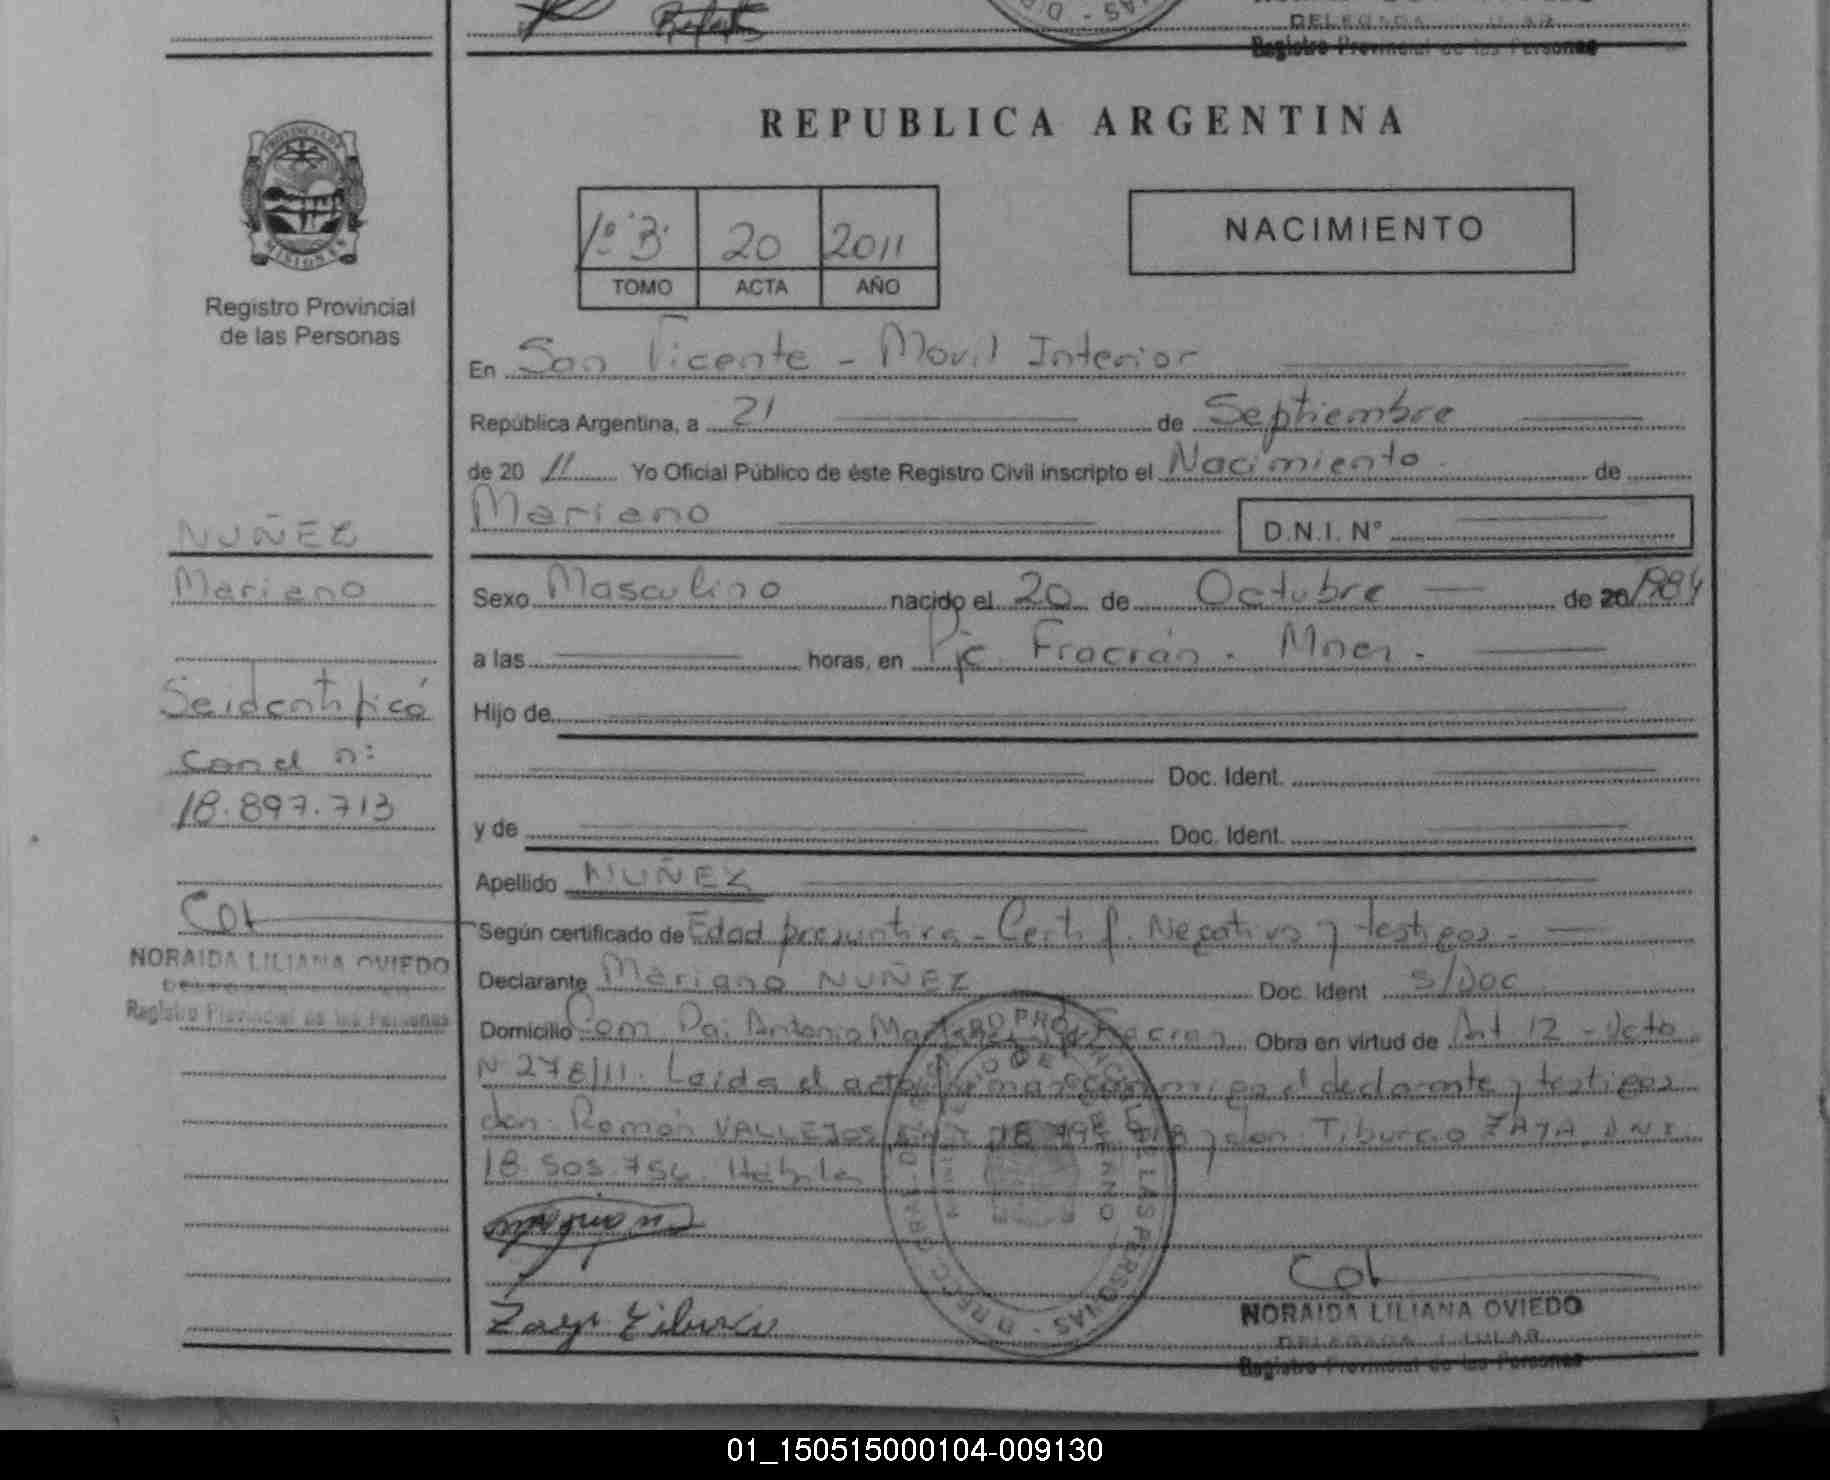 Registro Provincial de las Personas
REPUBLICA ARGENTINA
1º B 20 2011
TOMO ACTA AÑO
NACIMIENTO
PROVINCIA DE
MISIONES
Registro Provincial
de las Personas
En San Vicente - Movil Interior
República Argentina, a 21 de Septiembre
de 20 11 Yo Oficial Público de éste Registro Civil inscripto el Nacimiento de
Mariano D.N.I. Nº
NUÑEZ
Mariano
Se identificó
con el n:
18.897.713
NORAIDA LILIANA OVIEDO
Registro Provincial de las Personas
Sexo Masculino nacido el 20 de Octubre de 20 1984
a las horas, en Pje Fracrán - Mnes.
Hijo de
Doc. Ident.
y de Doc. Ident.
Apellido NUÑEZ
Según certificado de Edad presuntiva - Certif. Negativo y testigos -
Declarante Mariano NUÑEZ Doc. Ident S/Doc
Domicilio Com. Pai Antonio Fracran Obra en virtud de Art 12 - Dcto
N 278/11. Leida el acta firman conmigo el declarante y testigos
don: Ramón VALLEJOS y don: Tiburcio ZAYA D.N.I.
18.505.756.
Zaya Tiburcio
NORAIDA LILIANA OVIEDO
DELEGADA TITULAR
Registro Provincial de las Personas
01_150515000104-009130